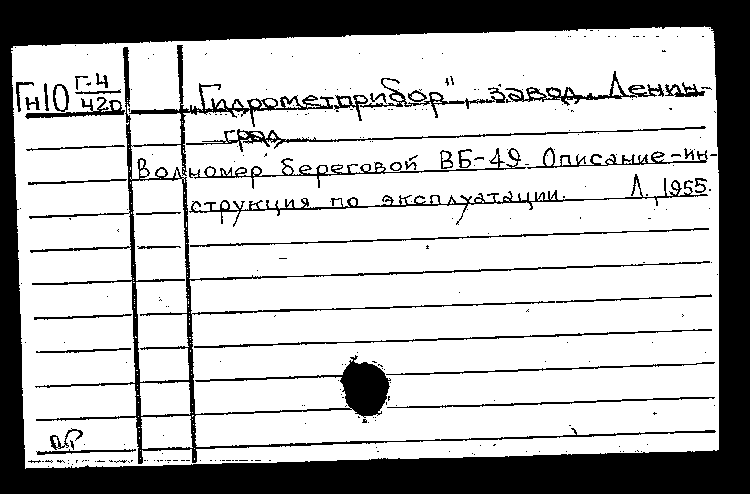 Гн10 Г-4/420 „Гидрометприбор", завод. Ленин-
град
Волномер береговой ВБ-49. Описание-ин-
струкция по эксплуатации. Л., 1955.